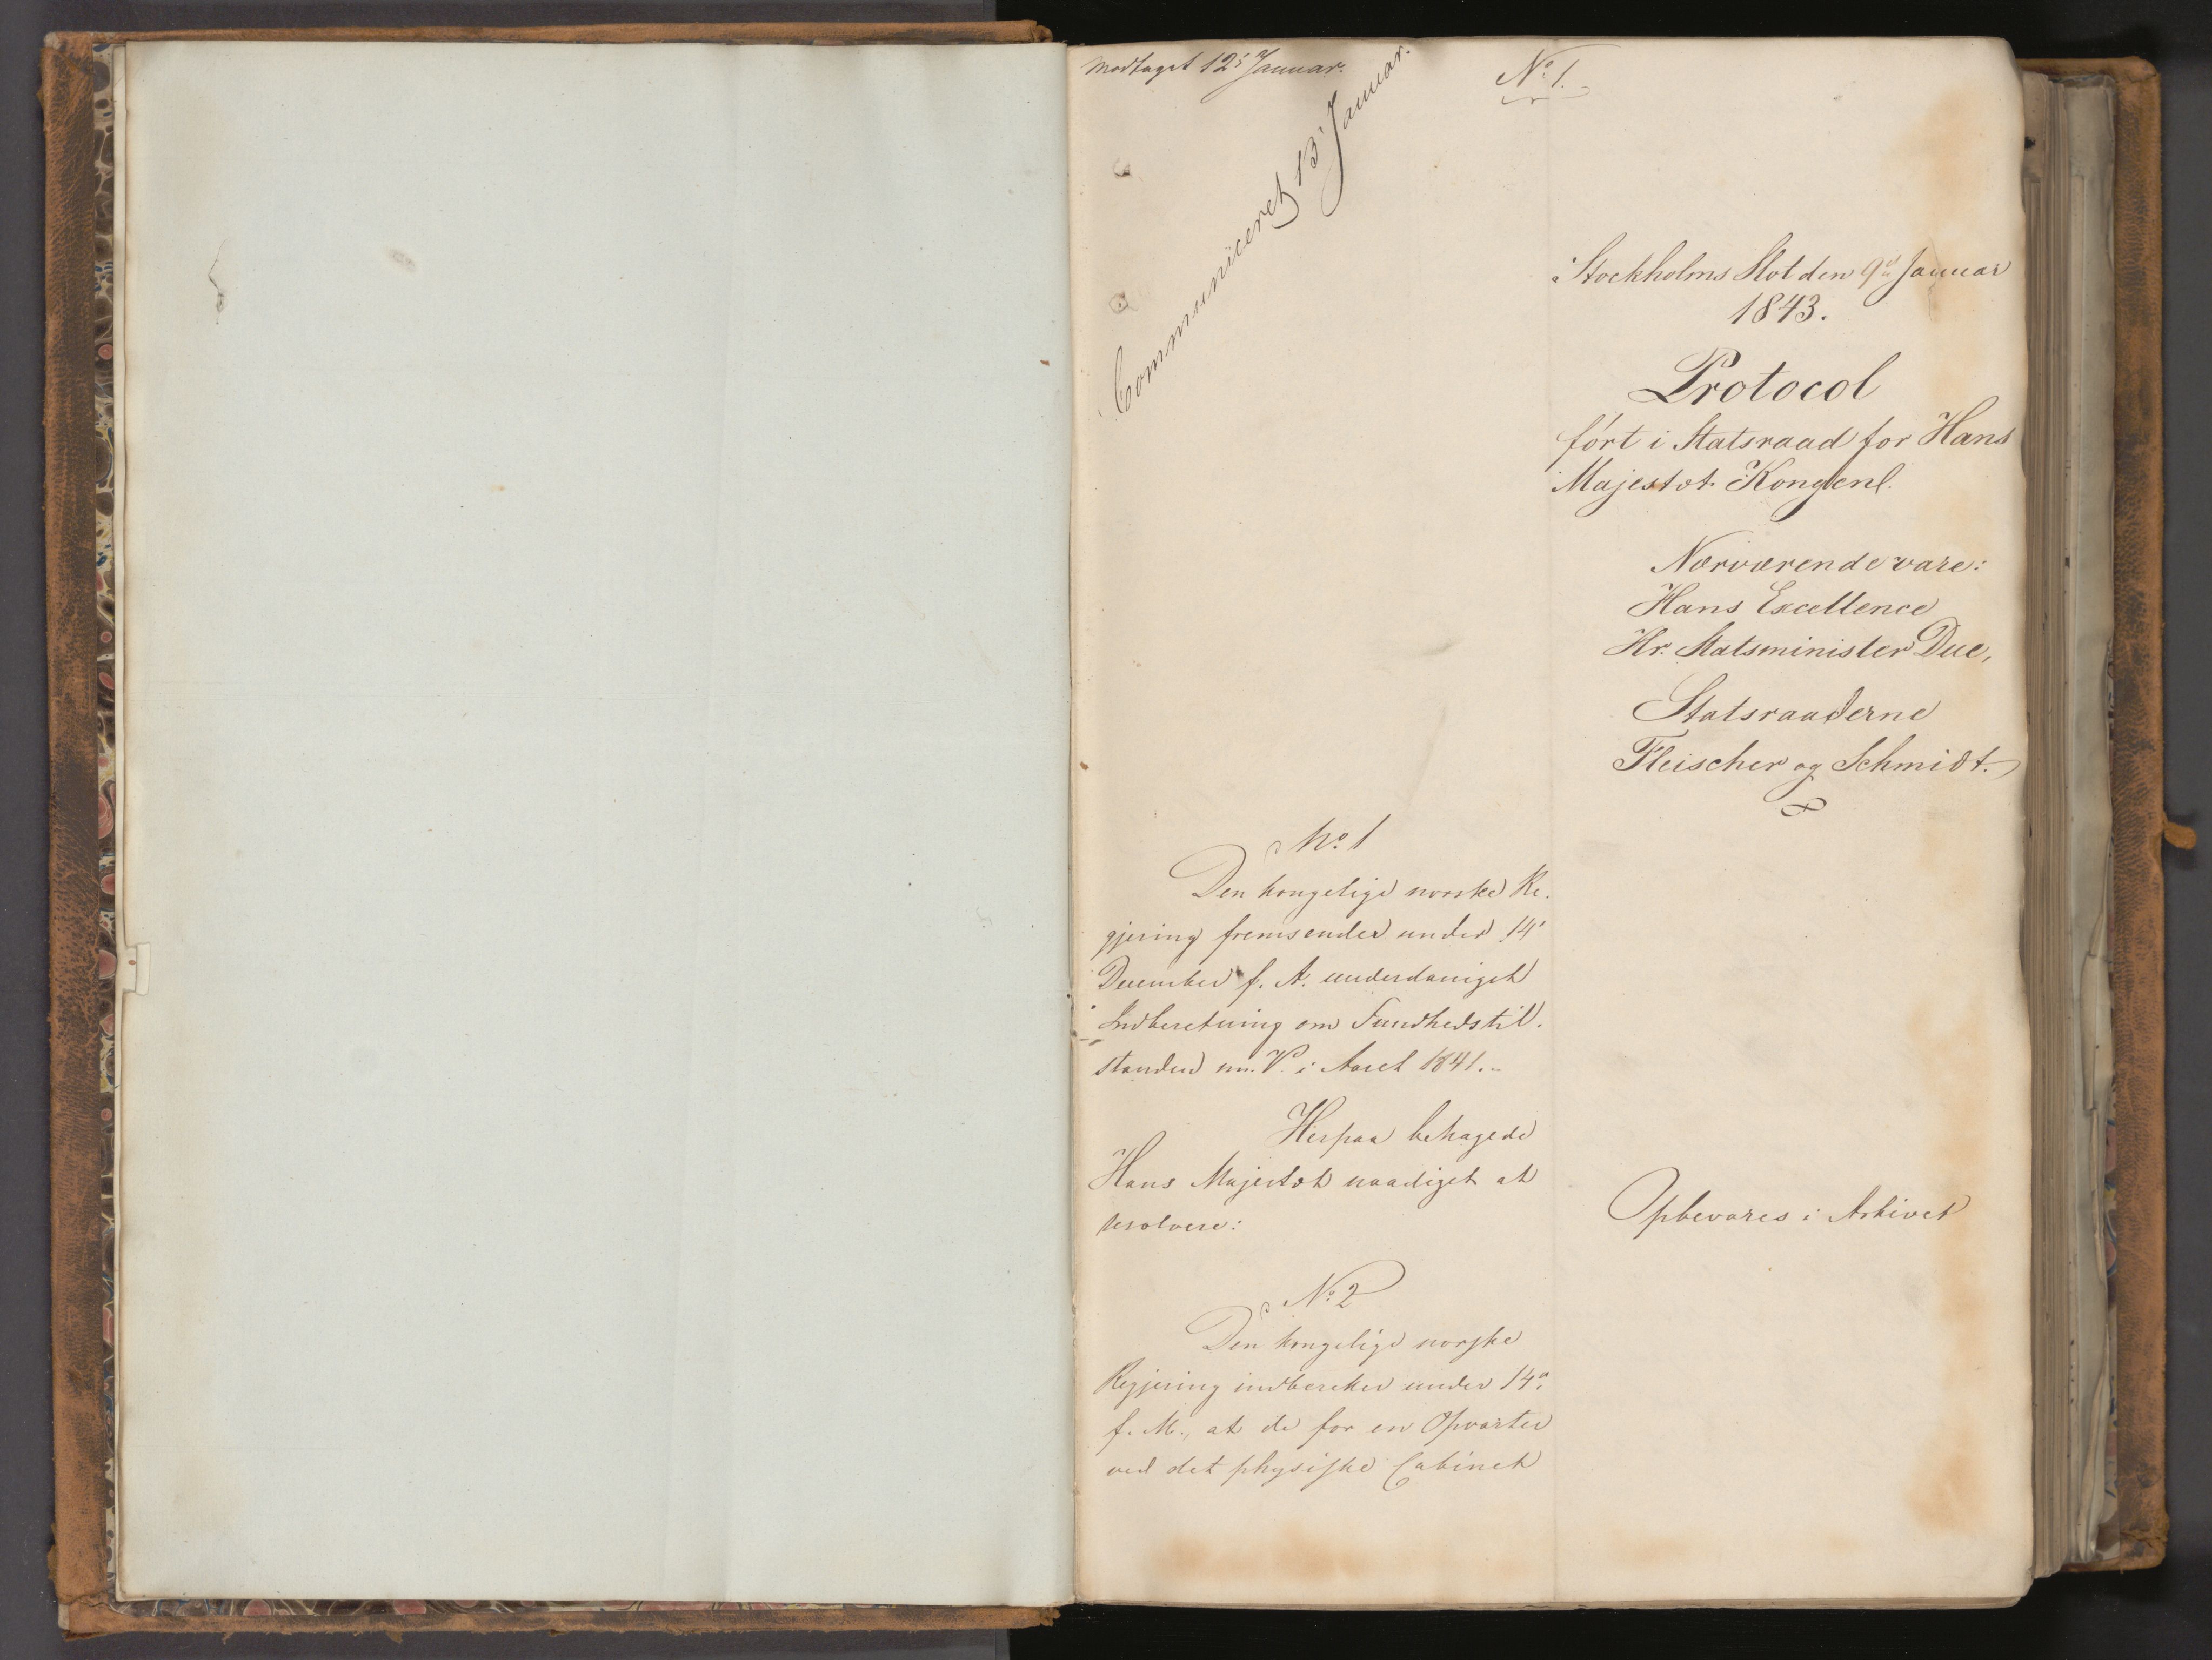 Modtaget 12' Januar.
Communiceret 13' Januar.
No. 1.
Stockholms Slot den 9de Januar
1843.
Protocol
ført i Statsraad for Hans
Majestæt Kongen.
Nærværende vare:
Hans Excellence
Hr. Statsminister Due,
Statsraaderne
Fleischer og Schmidt.
No. 1
Den kongelige norske Re-
gjering fremsender under 14'
December f. A. underdanigst
Indberetning om Sundhedstil-
standen m. V. i Aaret 1841.-
Herpaa behagede
Hans Majestæt naadigst at
resolvere:
Opbevares i Arkivet
No. 2
Den kongelige norske
Regjering indberetter under 14de
f. M., at de for en Opvarter
ved det physiske Cabinet